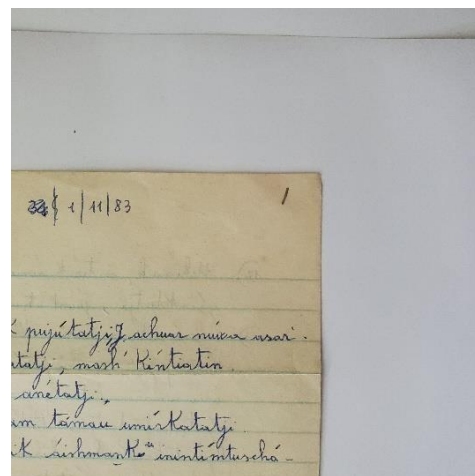 1/11/83
1
pujútatji, achuar núwa asar.
tatji, mash Kintiatin
anétatji.
am támau umiskatatji.
ik áishmank inintimtuschá-